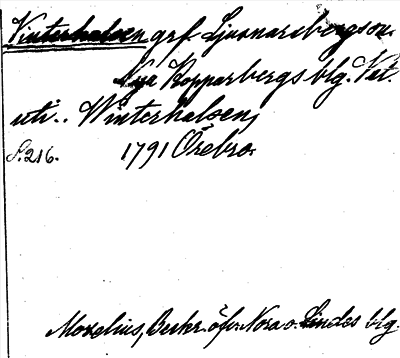 Vinterhalsen grf Ljusnarsbergson.
Nya Kopparbergs blg. Vet.
uti.. Winterhalsen,
S. 216. 1791 Örebro.
Moxelius, Beskr. öfv. Nora o. Lindes blg.